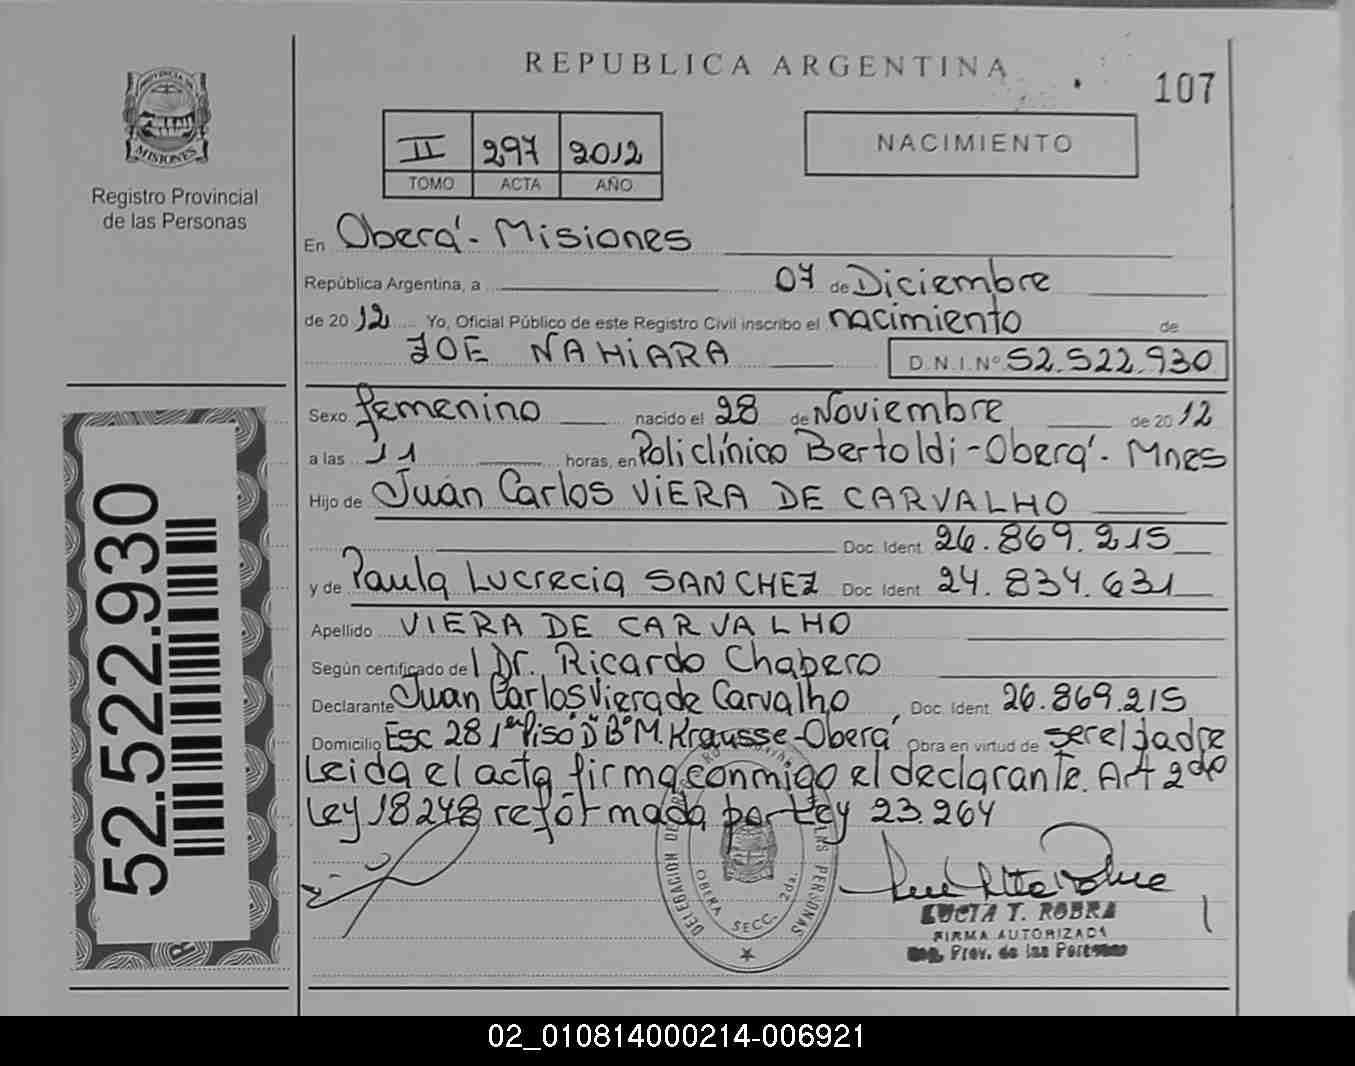 REPUBLICA ARGENTINA
107
PROVINCIA DE
MISIONES
Registro Provincial
de las Personas
II 297 2012
TOMO ACTA AÑO
NACIMIENTO
En Oberá - Misiones
República Argentina, a 07 de Diciembre
de 2012 Yo, Oficial Público de este Registro Civil inscribo el nacimiento de
ZOE NAHIARA D.N.I.Nº 52.522.930
Sexo femenino nacido el 28 de Noviembre de 2012
a las 11 horas, en Policlínico Bertoldi - Oberá - Mnes
Hijo de Juan Carlos VIERA DE CARVALHO
Doc. Ident. 26.869.215
y de Paula Lucrecia SANCHEZ Doc. Ident. 24.834.631
Apellido VIERA DE CARVALHO
Según certificado del Dr. Ricardo Chapero
Declarante Juan Carlos Viera de Carvalho Doc. Ident. 26.869.215
Domicilio Esc 28 1er Piso "D" Bº M. Krausse - Oberá Obra en virtud de ser el padre
Leida el acta firma conmigo el declarante. Art 2do
Ley 18248 reformada por Ley 23.264
DELEGACION DE REGISTRO PROVINCIAL DE LAS PERSONAS
OBERA SECC. 2da.
LUCIA T. ROBRA
FIRMA AUTORIZADA
Reg. Prov. de las Personas
52.522.930
02_010814000214-006921